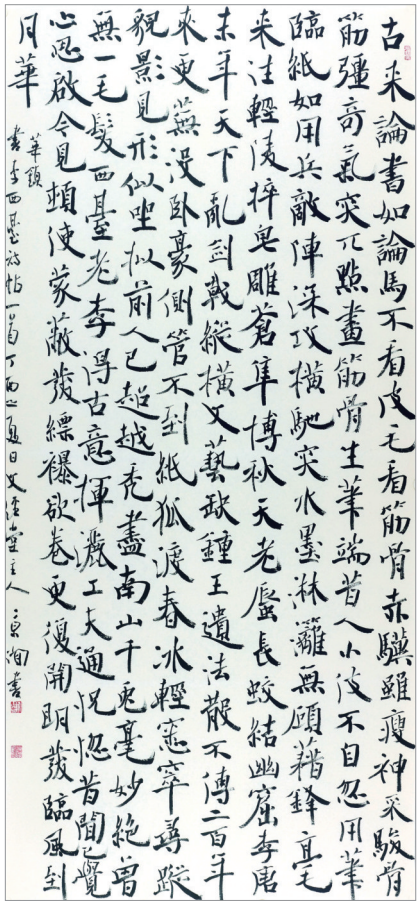 古来論書如論馬不看皮毛看筋骨赤驥雖瘦神采駿骨
筋彊奇氣突兀點畫筋骨生筆端昔人小伎不自忽用筆
臨紙如用兵敵陣深攻橫馳突水墨淋灕無顧藉鋒毫
来往輕凌捽皂雕蒼隼搏秋天老蜃長蛟結幽窟李唐
末年天下亂剑戟縱橫文藝缺鍾王遺法散不傳二百年
来更蕪没卧豪側管不到紙狐渡春冰輕窸窣尋蹤
貌景見形似坐擬前人已超越秃盡南山千兎毫妙絕曾
無一毛髮西臺老李得古意揮灑工夫通怳惚昔聞已覺
心思啟今見頓使蒙蔽發縹褾欲卷更復開明發臨風到
月華
華頭
書李西臺詩帖一首丁酉之夏日文佳堂主人京洵書